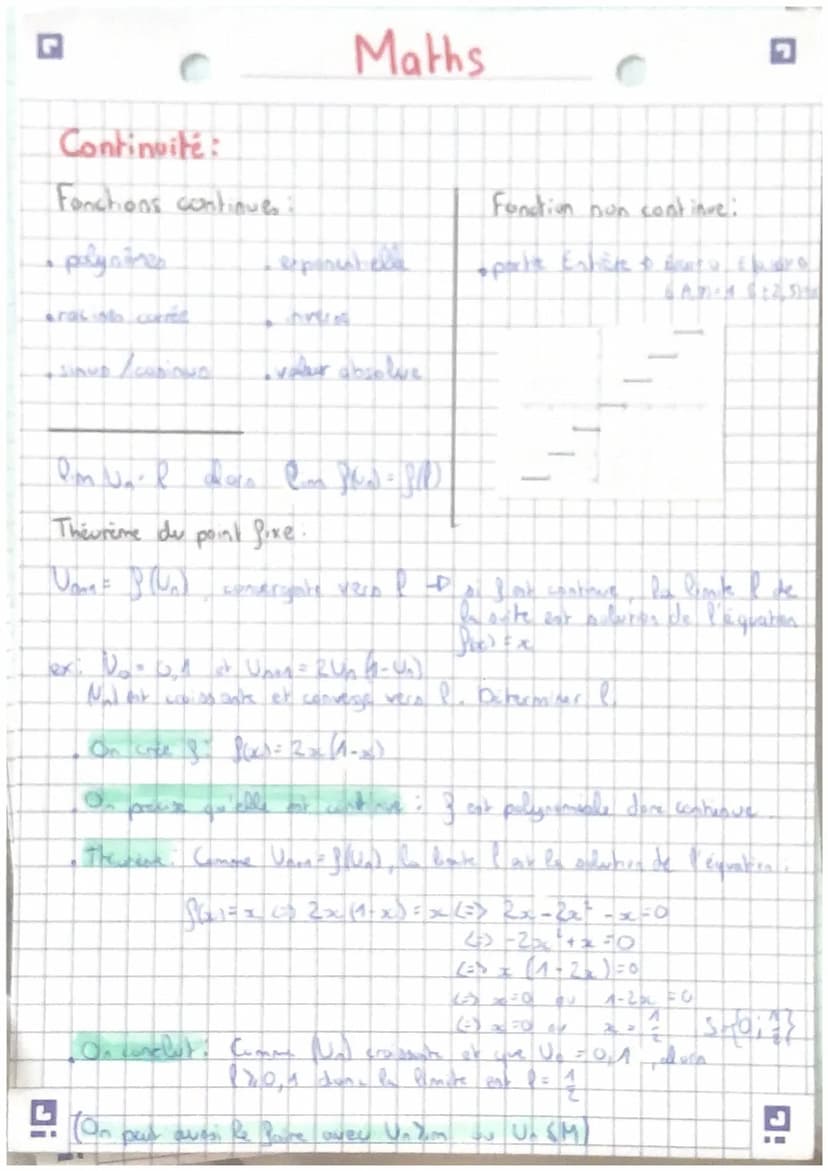 Maths
Continuité:
Fonctions continues:
• polynômes
• exponentielle
• racines carrée
• inverse
• sinus / cosinus
• valeur absolue
Fonction non continue:
• partie Entière
lim Un = l alors lim f(Un) = f(l)
Théorème du point fixe:
Un+1 = f(Un), convergente vers l → si f est continue, la limite l de
la suite est solution de l'équation
f(x) = x
ex: U0 = 0,1 et Un+1 = 2Un(1-Un)
(Un) est croissante et converge vers l. Déterminer l.
• On crée f: f(x) = 2x(1-x)
• On prouve qu'elle est continue: f est polynomiale donc continue.
• Théorème: Comme Un+1 = f(Un), la limite l est la solution de l'équation:
f(x) = x <=> 2x(1-x) = x <=> 2x - 2x² - x = 0
<=> -2x² + x = 0
<=> x(1-2x) = 0
<=> x=0 ou 1-2x = 0
<=> x=0 ou x = 1/2 S={0; 1/2}
• On conclut: Comme (Un) croissante et que U0 = 0,1, alors
l ≥ 0,1 donc la limite est l = 1/2
(On peut aussi le faire avec Un ≥ m ou Un ≤ M)